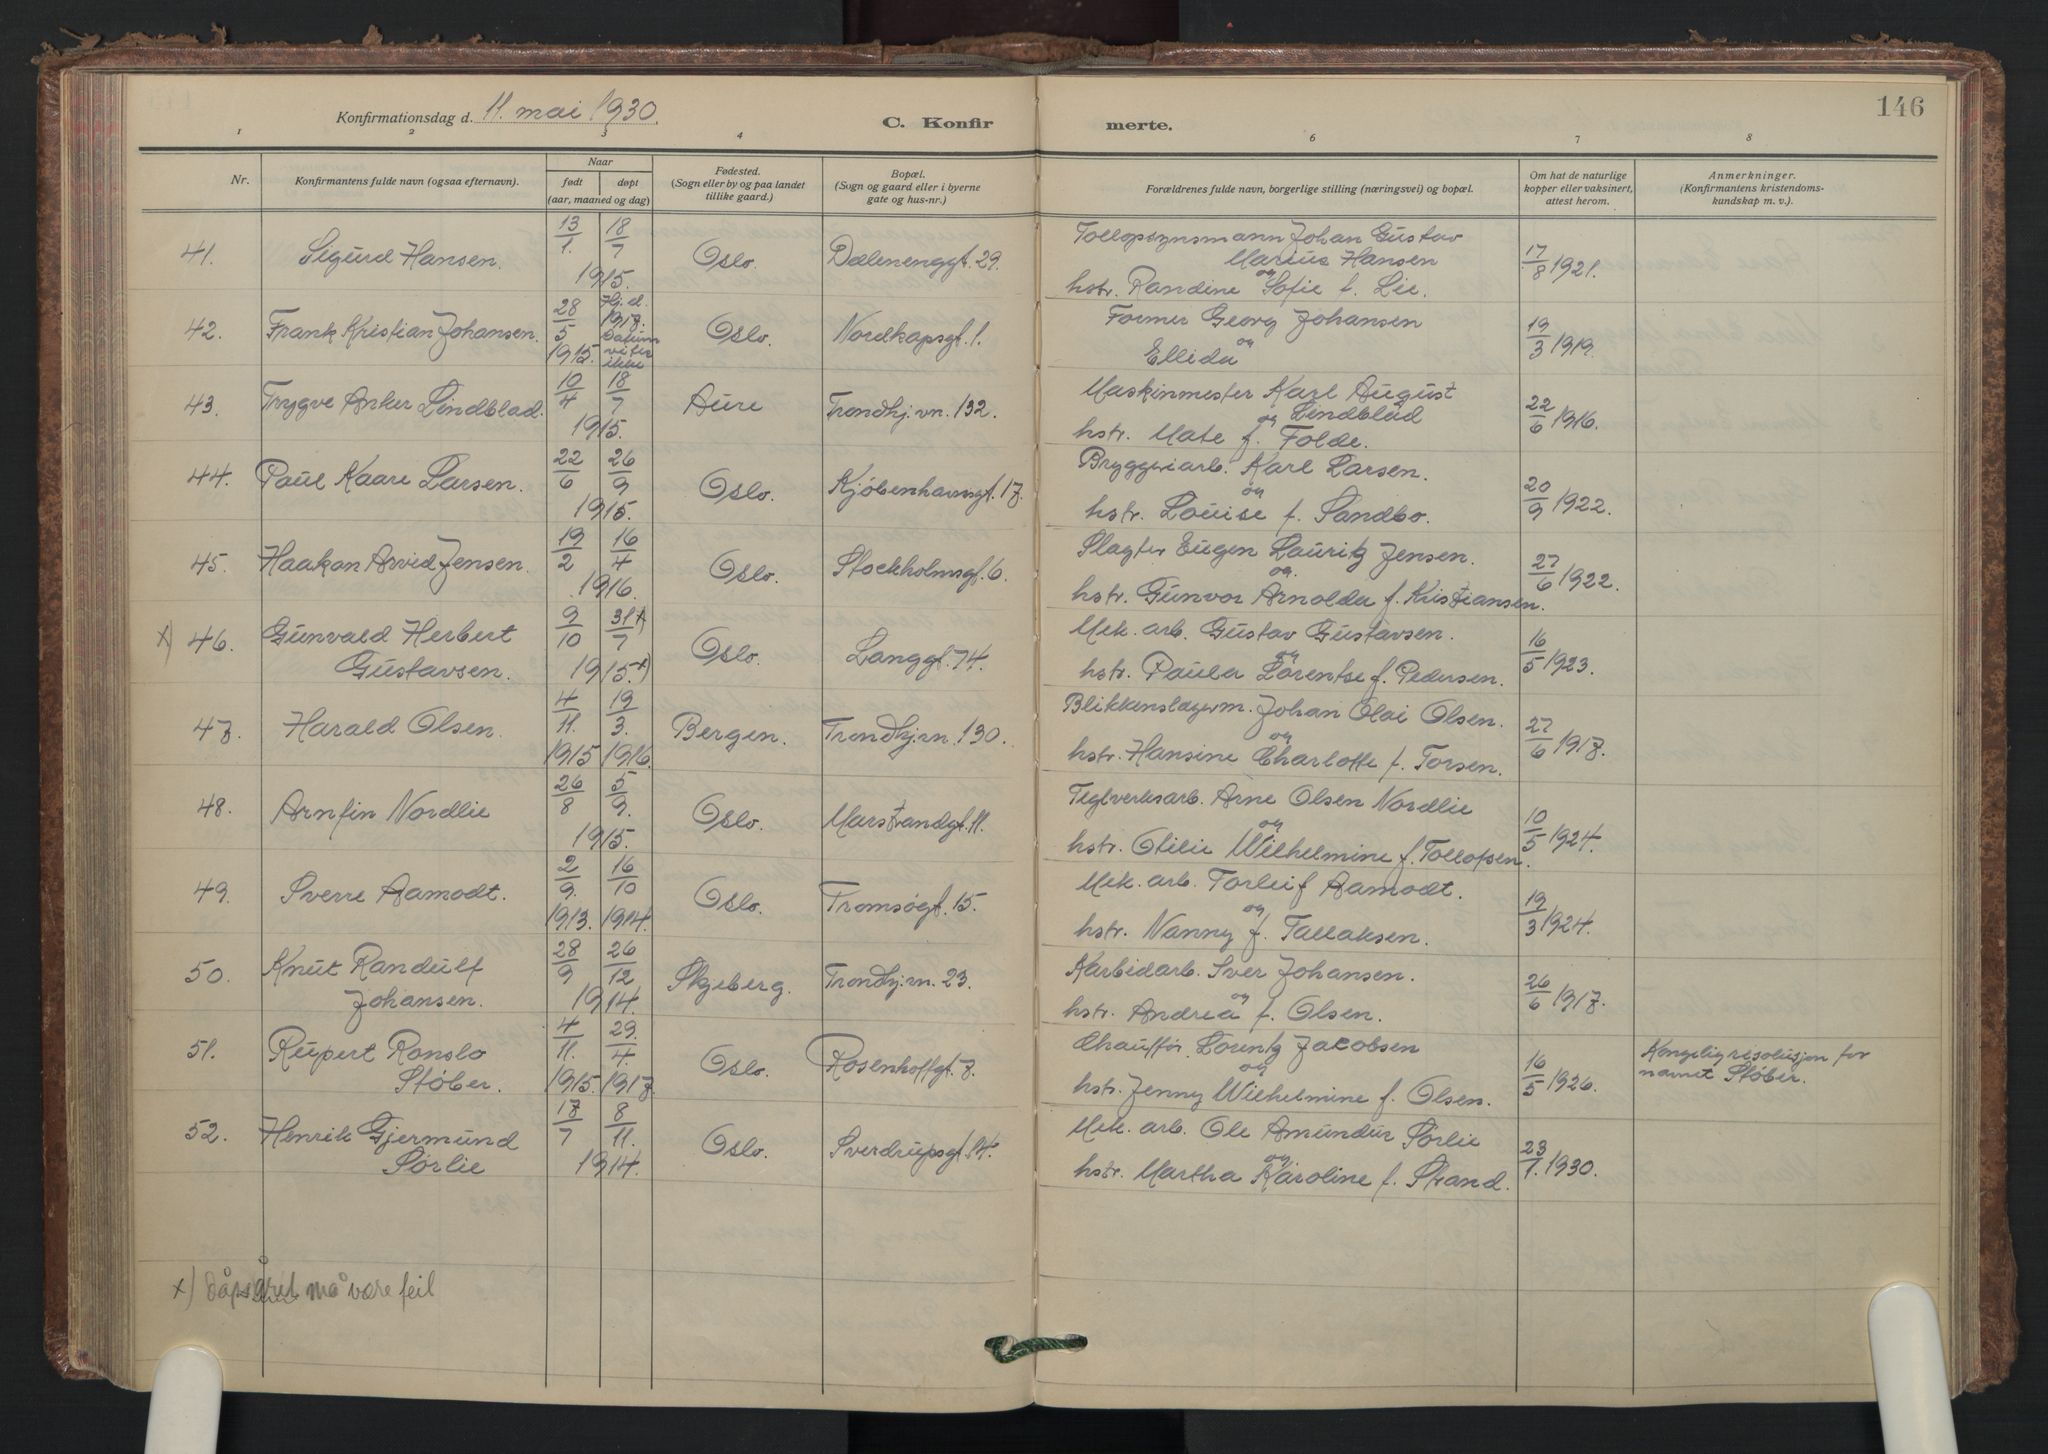 146
Konfirmationsdag d. 11. mai 1930.
C. Konfirmerte.
1 2 3 4 6 7 8
Nr.
Konfirmantens fulde navn (ogsaa efternavn).
Naar
født døpt
(aar, maaned og dag)
Fødested.
(Sogn eller by og paa landet
tillike gaard.)
Bopæl.
(Sogn og gaard eller i byerne
gate og hus-nr.)
Forældrenes fulde navn, borgerlige stilling (næringsvei) og bopæl.
Om hat de naturlige
kopper eller vaksinert,
attest herom.
Anmerkninger.
(Konfirmantens kristendoms-
kundskap m. v.).
41. Sigurd Hansen. 13/1. 18/7 1915. Oslo. Dælenenggt. 29. Tollopsynsmann Johan Gustav
Marius Hansen
og
hstr. Randine Sofie f. Lie. 17/8 1921.
42. Frank Kristian Johansen. 28/5 1915. Hj.d. 1917. Datum vites ikke Oslo. Nordkapsgt. 1. Former Georg Johansen
og
Ellida 19/3 1919.
43. Trygve Anker Lindblad. 10/4 18/7 1915. Aure Trondhj.vn. 132. Maskinmester Karl August
Lindblad
og
hstr. Mate f. Folde. 22/6 1916.
44. Paul Kaare Larsen. 22/6 26/9 1915. Oslo. Kjøbenhavnsgt. 17. Bryggeriarb. Karl Larsen.
og
hstr. Louise f. Sandbo. 20/9 1922.
45. Haakon Arvid Jensen. 19/2 16/4 1916. Oslo. Stockholmsgt. 6. Slagter Eugen Lauritz Jensen.
og
hstr. Gunvor Arnolda f. Kristiansen. 27/6 1922.
x) 46. Gunvald Herbert
Gustavsen. 9/10 31/7 x) 1915. x) Oslo. Langgt. 14. Mek. arb. Gustav Gustavsen.
og
hstr. Paula Lorentse f. Pedersen. 16/5 1923.
47. Harald Olsen. 4/11. 1915 19/3. 1916. Bergen. Trondhj.vn. 130. Blikkenslagerm. Johan Olai Olsen.
og
hstr. Hansine Charlotte f. Torsen. 27/6 1917.
48. Arnfin Nordlie 26/8 5/9. 1915. Oslo. Marstrandgt. 11. Teglverksarb. Arne Olsen Nordlie
og
hstr. Otilie Wilhelmine f. Tollofsen. 10/5 1924.
49. Sverre Aamodt. 2/9. 1913. 16/10 1914. Oslo. Tromsøgt. 15. Mek. arb. Torleif Aamodt.
og
hstr. Nanny f. Tallaksen. 19/3 1924.
50. Knut Randulf
Johansen. 28/9 26/12 1914. Skjeberg. Trondhj.vn. 23. Karbidarb. Iver Johansen.
og
hstr. Andrea f. Olsen. 26/6 1917.
51. Rupert Ronslo
Støber. 4/11. 1915. 29./4. 1917. Oslo. Rosenhoffgt. 7. Chauffør. Lorentz Jacobsen
og
hstr. Jenny Wilhelmine f. Olsen. 16/5 1926. Kongelig resolusjon for
navnet Støber.
52. Henrik Gjermund
Sørlie 17/7 8/11. 1914. Oslo. Sverdrupsgt. 14. Mek. arb. Ole Amundur Sørlie
og
hstr. Martha Karoline f. Strand. 23/1. 1930.
x) dåpsåret må være feil